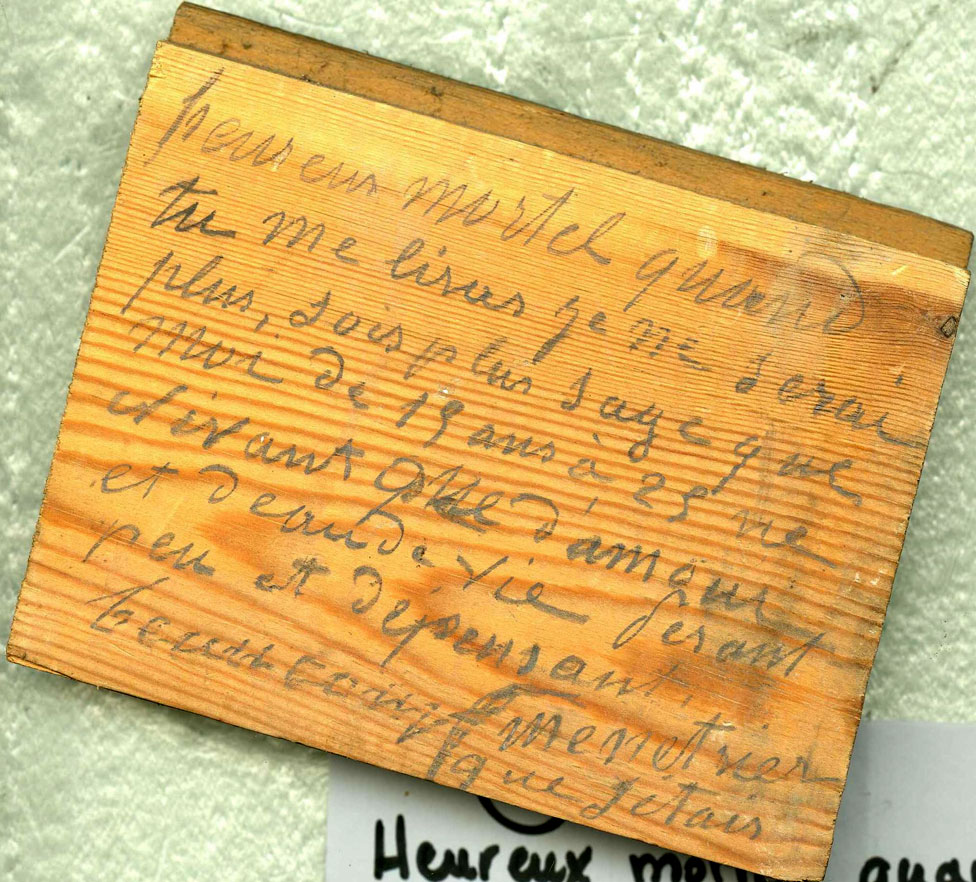 heureux mortel quand
tu me liras je ne serai
plus, sois plus sage que
moi de 19 ans à 25 ne
vivant que d'amour
et deaudevie fesant
peu et dépensant,
beaucoup menetrier
que jetais
Heureux